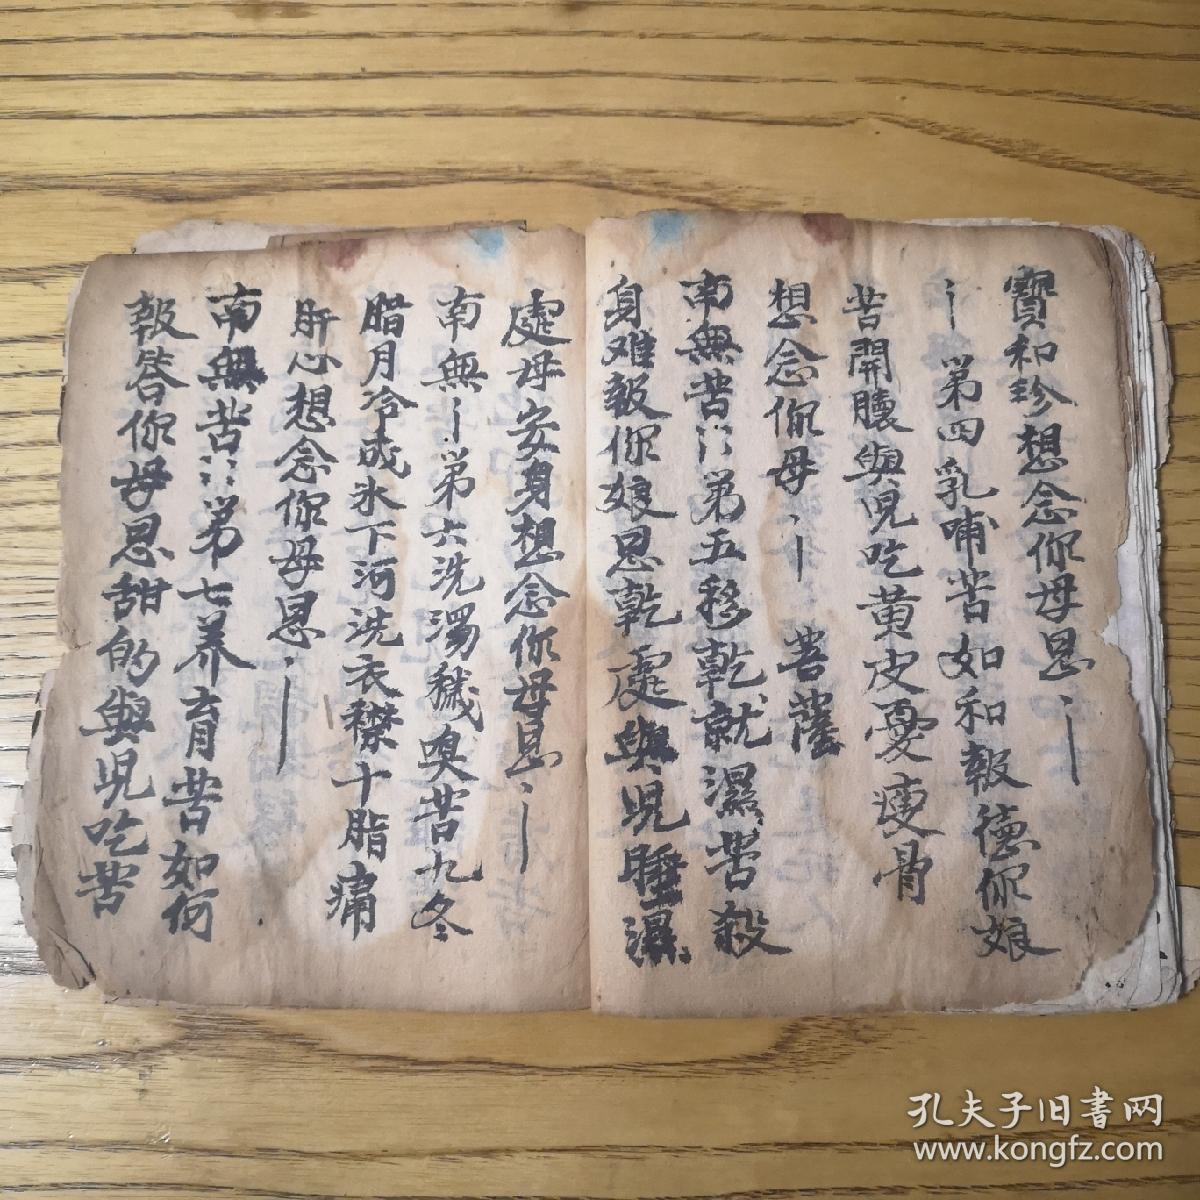 寶和珍想念你母恩⺀丨
丨第四乳哺苦如和報德你娘
苦開懷與児吃黄皮憂瘦骨
想念你母⺀丨 菩薩
南無苦⺀第五移乾就濕苦殺
身难報你娘恩乾處與児睡濕
處母安身想念你母恩⺀丨
南無丨第六洗濁穢嗅苦九冬
腊月冷成氷下河洗衣襟十脂痛
肝心想念你母恩⺀丨
南無苦⺀第七养育苦如何
報答你母恩甜的與児吃苦
孔夫子旧書网
www.kongfz.com